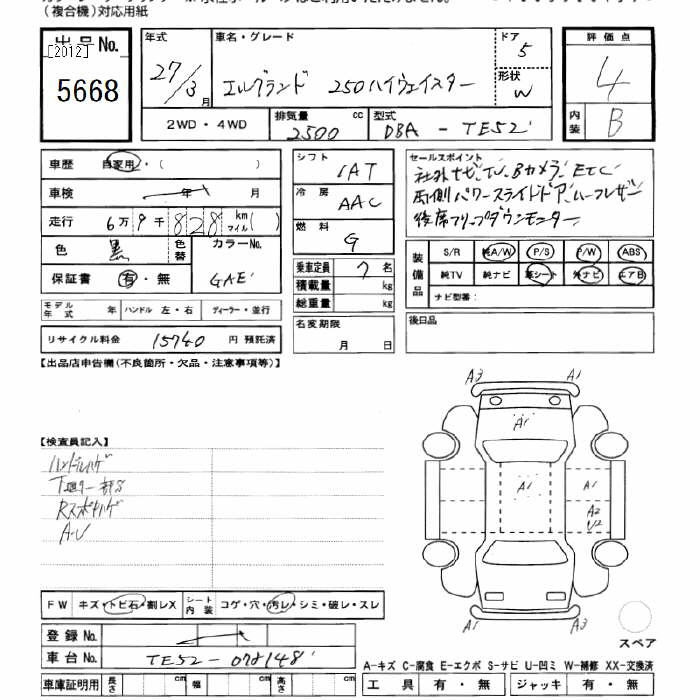 （複合機）対応用紙
出品No.
[2012]
5668
年式
27/3 月
車名・グレード
エルグランド 250ハイウェイスター
ドア
5
形状
W
評価点
4
内装
B
2WD・4WD
排気量
2500 cc
型式
DBA - TE52
車歴 自家用・（ ）
車検 年 月
走行 6万9千828 km マイル( )
色 黒 色替
カラーNo.
GAE
保証書 有・無
モデル年式 年 ハンドル 左・右 ディーラー・並行
リサイクル料金 15740 円 預託済
シフト
IAT
冷房
AAC
燃料
G
乗車定員 7 名
積載量 kg
総重量 kg
名変期限
月 日
セールスポイント
社外ナビ、TV、Bカメラ、ETC
両側パワースライドドア、ハーフレザー
後席フリップダウンモニター
装備品
S/R 純A/W P/S P/W ABS
純TV 純ナビ 革シート 外ナビ エアB
ナビ型番：
後日品
【出品店申告欄(不良箇所・欠品・注意事項等)】
【検査員記入】
ハンドルハゲ
A-U
A3 A1
A1
A1 A1
A2
U2
A3 A1
スペア
FW キズ・トビ石・割レX シート内装 コゲ・穴・汚レ・シミ・破レ・スレ
登録No.
車台No. TE52-078148
車庫証明用 長さ cm 幅 cm 高さ cm
A-キズ C-腐食 E-エクボ S-サビ U-凹ミ W-補修 XX-交換済
工具 有・無 ジャッキ 有・無